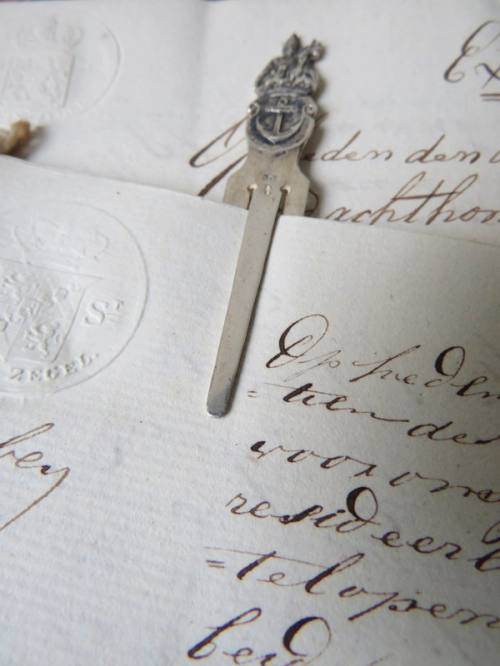 Ex
den den
achthon
St.
ZEGEL.
Op heden
=tien de
voor ons
resideer
=telopen
bey